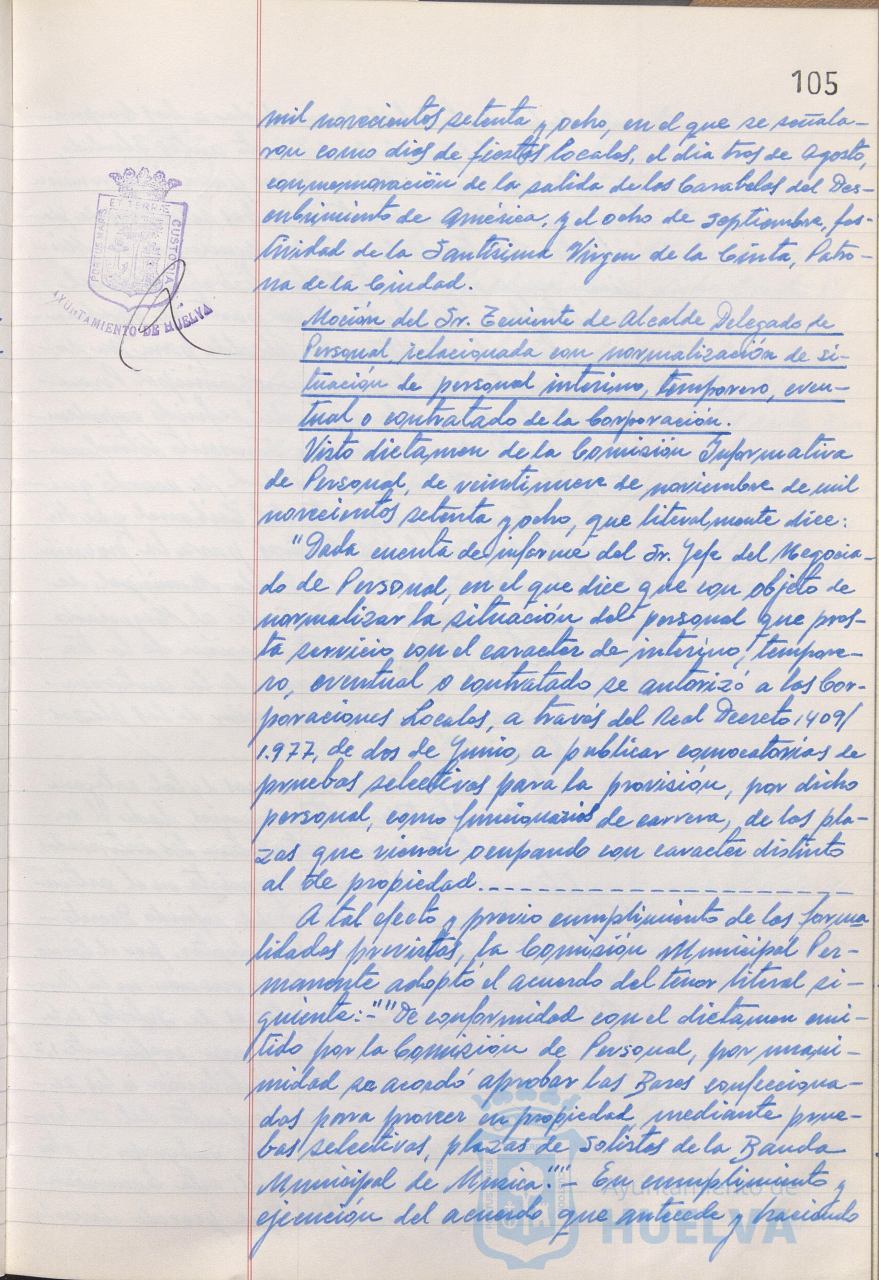 105
mil novecientos setenta y ocho, en el que se señala-
ron como dias de fiestas locales, el dia tres de Agosto,
conmemoración de la salida de las Carabelas del Des-
cubrimiento de América, y el ocho de Septiembre, fes-
tividad de la Santísima Virgen de la Cinta, Patro-
na de la Ciudad.
PORTUS MARIS ET TERRAE CUSTODIA
AYUNTAMIENTO DE HUELVA
Moción del Sr. Teniente de Alcalde Delegado de
Personal, relacionada con normalización de si-
tuación de personal interino, temporero, even-
tual o contratado de la Corporación.
Visto dictamen de la Comisión Informativa
de Personal, de veintinueve de noviembre de mil
novecientos setenta y ocho, que literalmente dice:
"Dada cuenta de informe del Sr. Jefe del Negocia-
do de Personal, en el que dice que con objeto de
normalizar la situación del personal que pres-
ta servicio con el caracter de interino, tempore-
ro, eventual o contratado se autorizó a las Cor-
poraciones Locales, a través del Real Decreto 1409/
1.977, de dos de Junio, a publicar convocatorias de
pruebas selectivas para la provisión, por dicho
personal, como funcionarios de carrera, de las pla-
zas que vienen ocupando con caracter distinto
al de propiedad.----------------------
A tal efecto y previo cumplimiento de las forma
lidades previstas, la Comisión Municipal Per-
manente adoptó el acuerdo del tenor literal si-
guiente:-""De conformidad con el dictamen emi-
tido por la Comisión de Personal, por unani-
midad se acordó aprobar las Bases confecciona-
das para proveer en propiedad, mediante prue-
bas selectivas, plazas de Solistas de la Banda
Municipal de Musica.""- En cumplimiento y
ejecución del acuerdo que antecede y haciendo
Ayuntamiento de
HUELVA